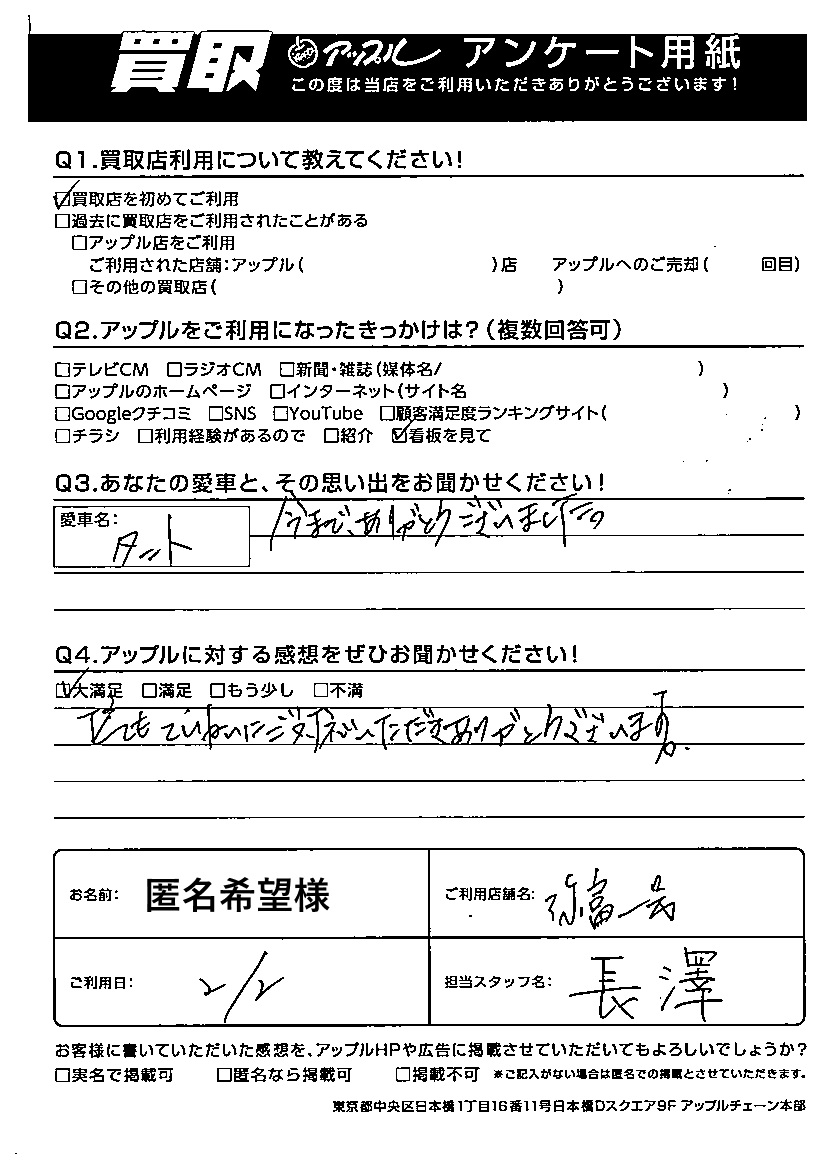 買取 アップル アンケート用紙
この度は当店をご利用いただきありがとうございます！
Q1.買取店利用について教えてください！
☑買取店を初めてご利用
□過去に買取店をご利用されたことがある
□アップル店をご利用
ご利用された店舗：アップル（　　　）店　アップルへのご売却（　　　回目）
□その他の買取店（　　　）
Q2.アップルをご利用になったきっかけは？（複数回答可）
□テレビCM □ラジオCM □新聞・雑誌（媒体名/　　　）
□アップルのホームページ □インターネット（サイト名　　　）
□Googleクチコミ □SNS □YouTube □顧客満足度ランキングサイト（　　　）
□チラシ □利用経験があるので □紹介 ☑看板を見て
Q3.あなたの愛車と、その思い出をお聞かせください！
愛車名：
タント
今まで、ありがとうございました。
Q4.アップルに対する感想をぜひお聞かせください！
☑大満足 □満足 □もう少し □不満
とてもていねいにご対応いただきありがとうございます。
お名前： 匿名希望様
ご利用店舗名： 弥富一号
ご利用日： 2/2
担当スタッフ名： 長澤
お客様に書いていただいた感想を、アップルHPや広告に掲載させていただいてもよろしいでしょうか？
□実名で掲載可 □匿名なら掲載可 □掲載不可 ※ご記入がない場合は匿名での掲載とさせていただきます。
東京都中央区日本橋1丁目16番11号日本橋Dスクエア9F アップルチェーン本部